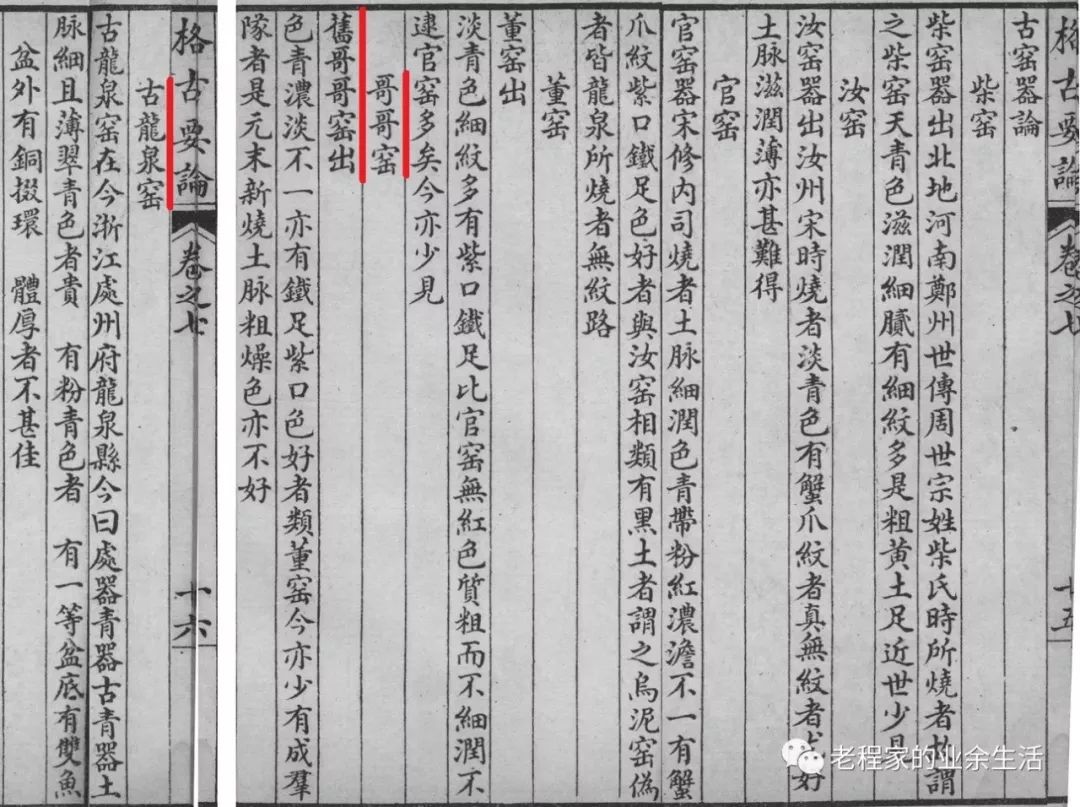 格古要論 卷之七 十五
古窑器論
柴窑
柴窑器出北地河南鄭州世傳周世宗姓柴氏時所燒者故謂
之柴窑天青色滋潤細膩有細紋多是粗黃土足近世少見
汝窑
汝窑器出汝州宋時燒者淡青色有蟹爪紋者真無紋者好
土脉滋潤薄亦甚難得
官窑
官窑器宋修内司燒者土脉細潤色青帶粉紅濃澹不一有蟹
爪紋紫口鐵足色好者與汝窑相類有黑土者謂之烏泥窑偽
者皆龍泉所燒者無紋路
董窑
董窑出
淡青色細紋多有紫口鐵足比官窑無紅色質粗而不細潤不
逮官窑多矣今亦少見
哥哥窑
舊哥哥窑出
色青濃淡不一亦有鐵足紫口色好者類董窑今亦少有成羣
隊者是元末新燒土脉粗燥色亦不好
格古要論 卷之七 十六
古龍泉窑
古龍泉窑在今浙江處州府龍泉縣今曰處器青器古青器土
脉細且薄翠青色者貴 有粉青色者 有一等盆底有雙魚
盆外有銅掇環 體厚者不甚佳
老程家的业余生活